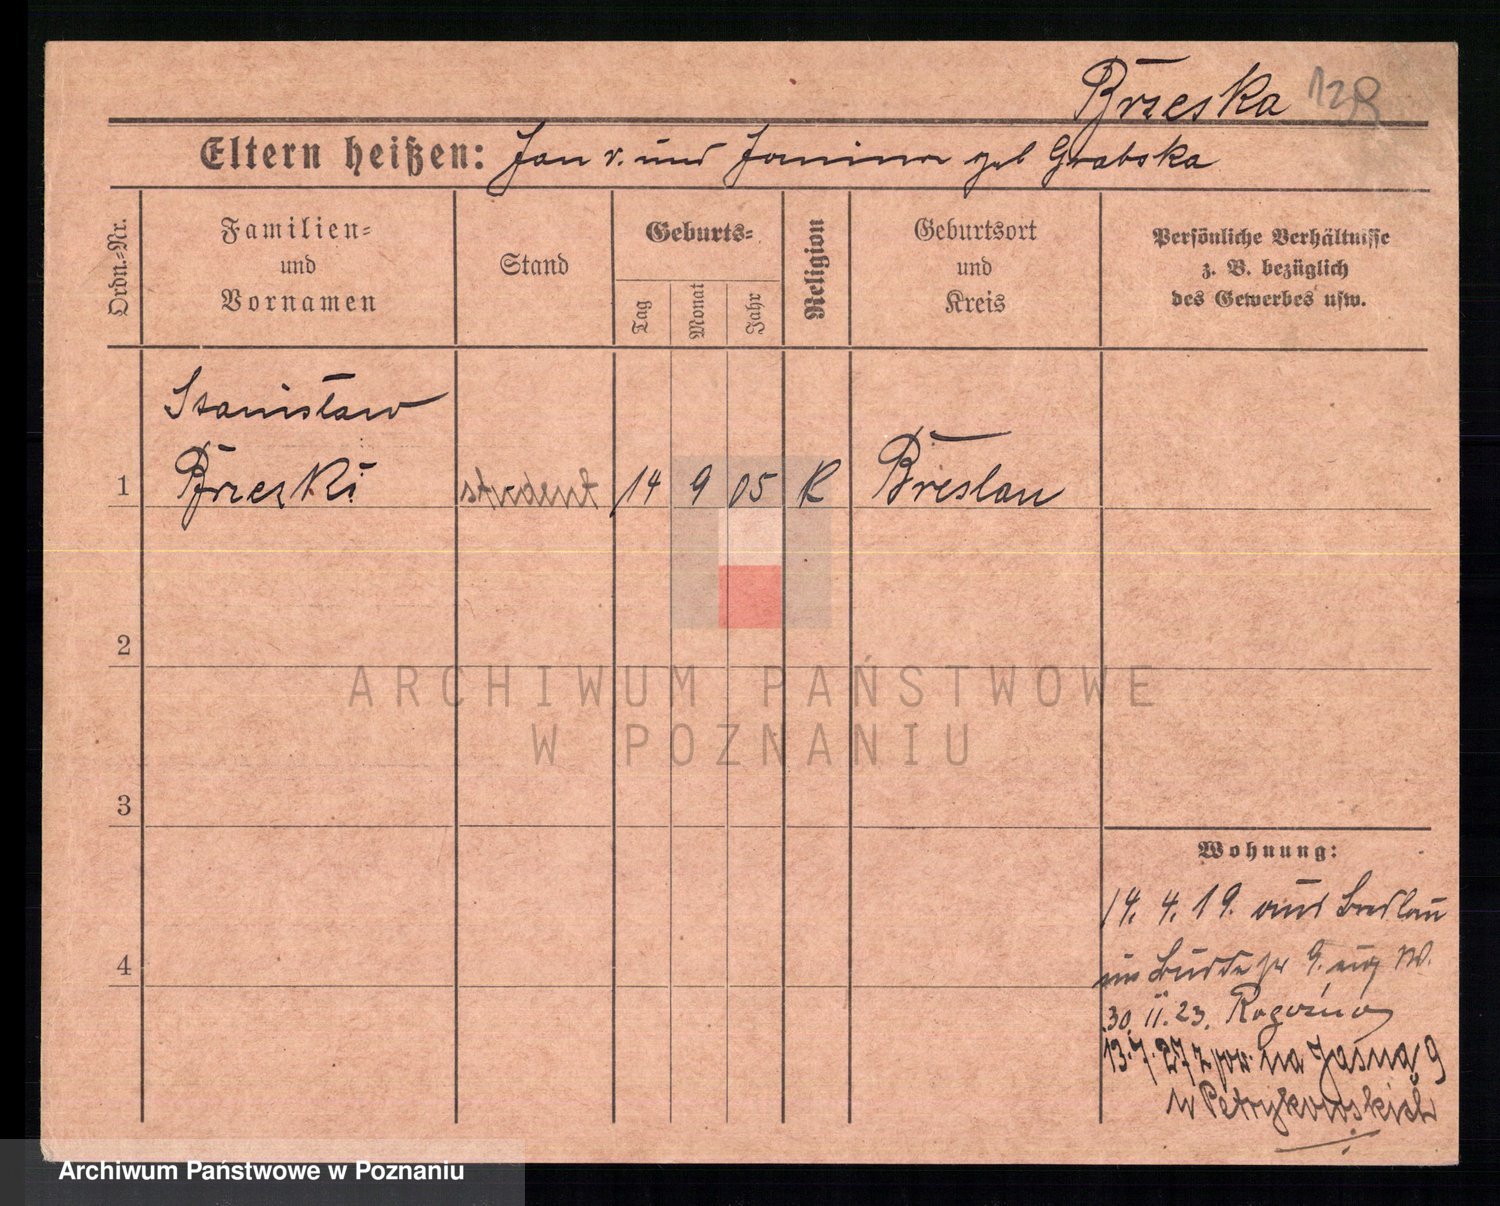 Brzeska 128
Eltern heißen: Jan v. und Janina geb Grabska
Ordn.=Nr.
Familien=
und
Vornamen
Stand
Geburts=
Tag
Monat
Jahr
Religion
Geburtsort
und
Kreis
Persönliche Verhältnisse
z. B. bezüglich
des Gewerbes usw.
Stanisław
1 Brzeski student 14 9 05 K Breslau
2
ARCHIWUM PAŃSTWOWE
W POZNANIU
3
Wohnung:
14. 4. 19. aus Breslau
4
30. 11. 23. Rogoźno
13. 7. 27 z pow. na Jasną 9
u Petrykowskich
Archiwum Państwowe w Poznaniu